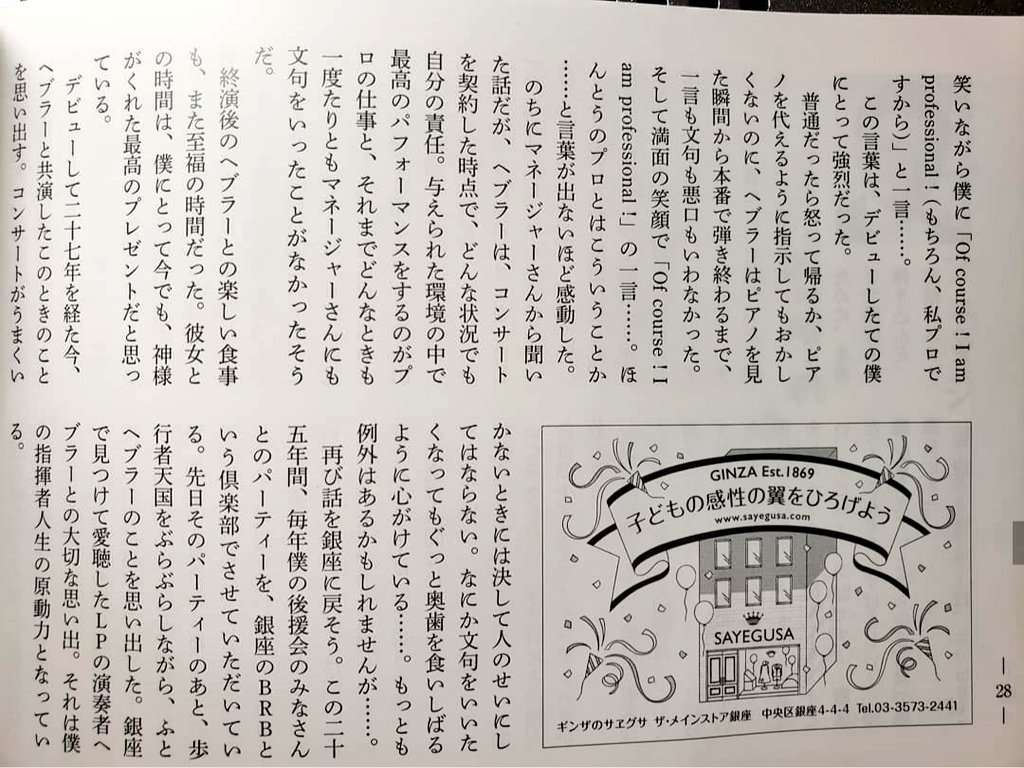 笑いながら僕に「Of course！I am
professional！（もちろん、私プロで
すから）」と一言……。
この言葉は、デビューしたての僕
にとって強烈だった。
普通だったら怒って帰るか、ピア
ノを代えるように指示してもおかし
くないのに、ヘブラーはピアノを見
た瞬間から本番で弾き終わるまで、
一言も文句も悪口もいわなかった。
そして満面の笑顔で「Of course！I
am professional！」の一言……。ほ
んとうのプロとはこういうことか
……と言葉が出ないほど感動した。
のちにマネージャーさんから聞い
た話だが、ヘブラーは、コンサート
を契約した時点で、どんな状況でも
自分の責任。与えられた環境の中で
最高のパフォーマンスをするのがプ
ロの仕事と、それまでどんなときも
一度たりともマネージャーさんにも
文句をいったことがなかったそう
だ。
終演後のヘブラーとの楽しい食事
も、また至福の時間だった。彼女と
の時間は、僕にとって今でも、神様
がくれた最高のプレゼントだと思っ
ている。
デビューして二十七年を経た今、
ヘブラーと共演したこのときのこと
を思い出す。コンサートがうまくい
かないときには決して人のせいにし
てはならない。なにか文句をいいた
くなってもぐっと奥歯を食いしばる
ように心がけている……。もっとも
例外はあるかもしれませんが……。
再び話を銀座に戻そう。この二十
五年間、毎年僕の後援会のみなさん
とのパーティーを、銀座のBRBと
いう倶楽部でさせていただいてい
る。先日そのパーティーのあと、歩
行者天国をぶらぶらしながら、ふと
ヘブラーのことを思い出した。銀座
で見つけて愛聴したLPの演奏者ヘ
ブラーとの大切な思い出。それは僕
の指揮者人生の原動力となってい
る。
GINZA Est.1869
子どもの感性の翼をひろげよう
www.sayegusa.com
SAYEGUSA
ギンザのサヱグサ ザ・メインストア銀座 中央区銀座4-4-4 Tel.03-3573-2441
28